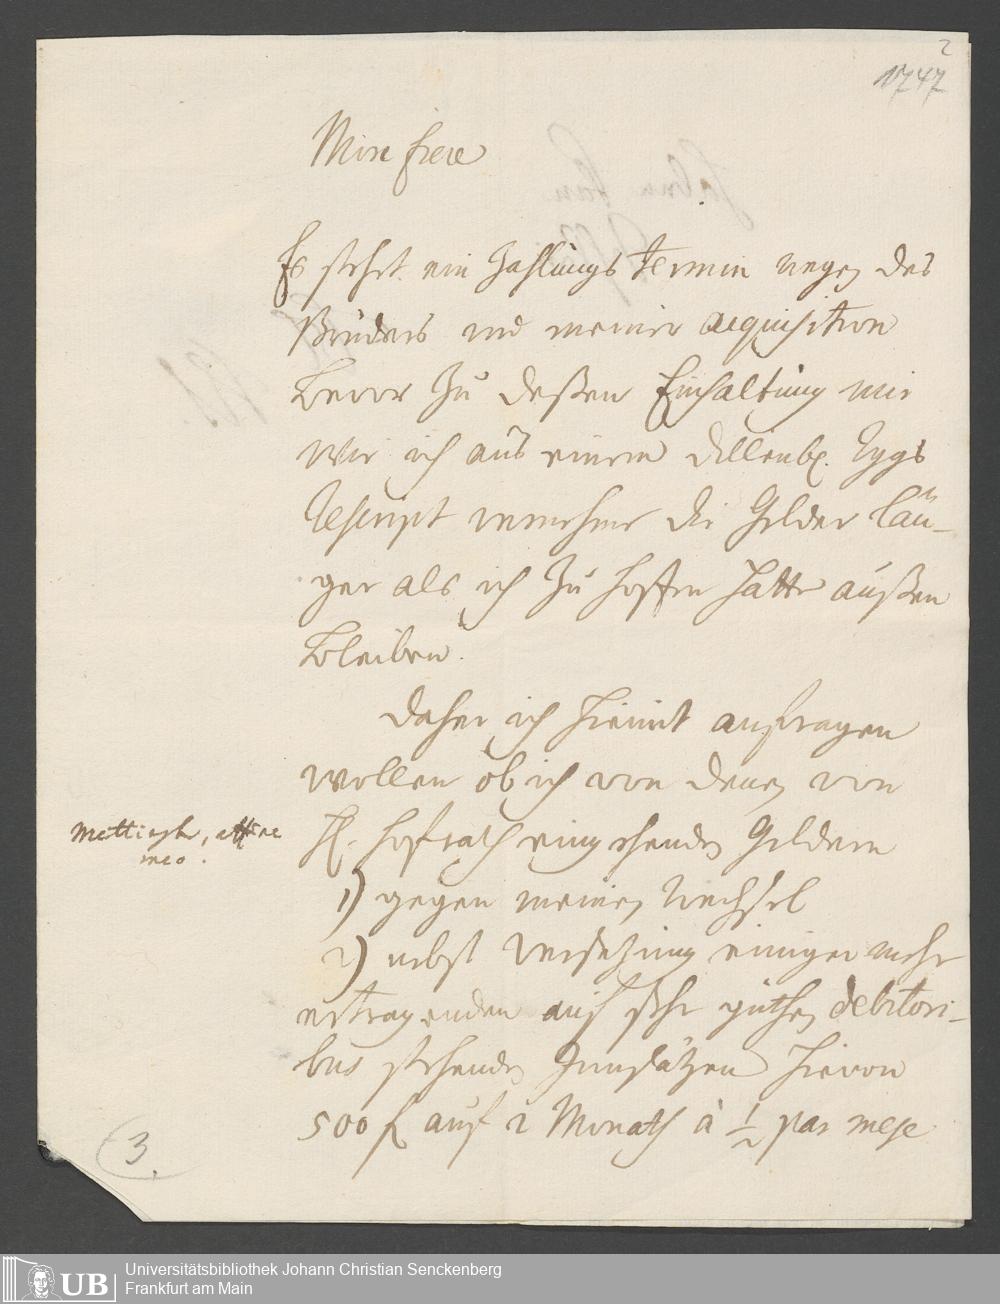 2
1747
Mon frere
Es steht ein Zahlungs Termin wegen des
Bruders und meiner acquisition
bevor zu deßen Einhaltung mir
wie ich aus einem Dillenb.
Rescript vernehme die Gelder län-
ger als ich zu hoffen hatte außen
bleiben.
Daher ich hiemit anfragen
wollen ob ich von denen von
H. Hofrath eingehenden Geldern
1) gegen meinen Wechsel
2) nebst Versetzung einiger mehr
ertragenden auf sehr guthen debitori-
bus stehenden Innsätzen hievon
500 f auf 2 Monath à ½ par mese
meo.
3.
UB
Universitätsbibliothek Johann Christian Senckenberg
Frankfurt am Main